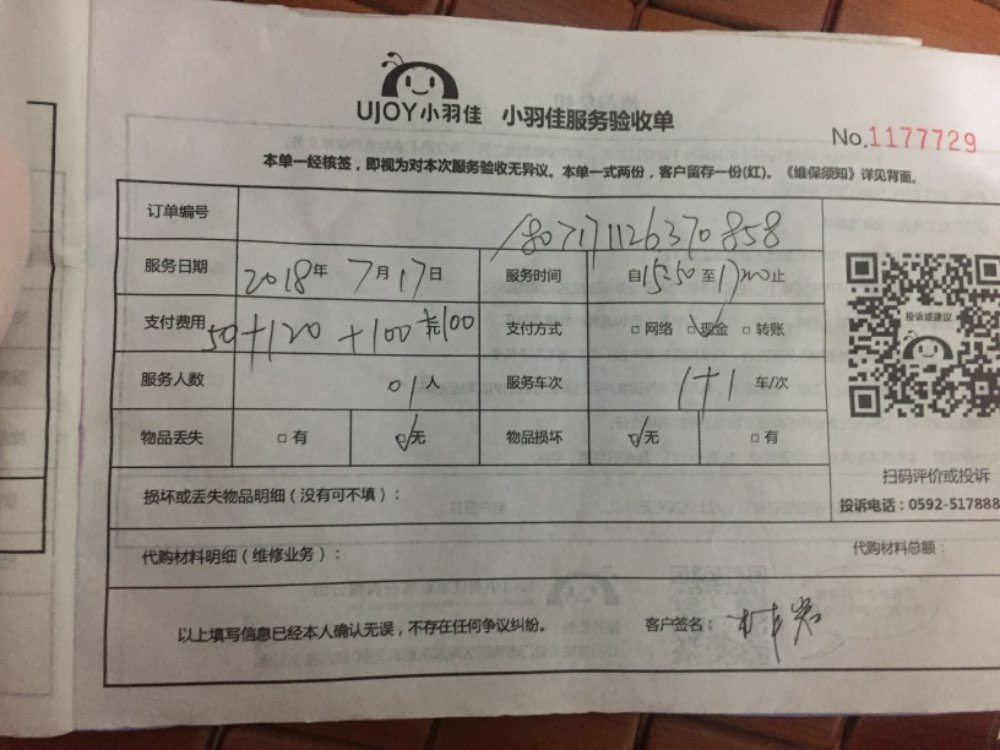 UJOY小羽佳 小羽佳服务验收单
No.1177729
本单一经核签，即视为对本次服务验收无异议。本单一式两份，客户留存一份(红)。《维保须知》详见背面。
订单编号 1807171126370858
服务日期 2018年 7月17日 服务时间 自15:50至17:20止
支付费用 50+120+100 支付方式 □网络 □现金 □转账
服务人数 01人 服务车次 1+1 车/次
物品丢失 □有 □无 物品损坏 □无 □有
投诉或建议
扫码评价或投诉
投诉电话：0592-517888
损坏或丢失物品明细（没有可不填）：
代购材料明细（维修业务）： 代购材料总额：
以上填写信息已经本人确认无误，不存在任何争议纠纷。 客户签名：